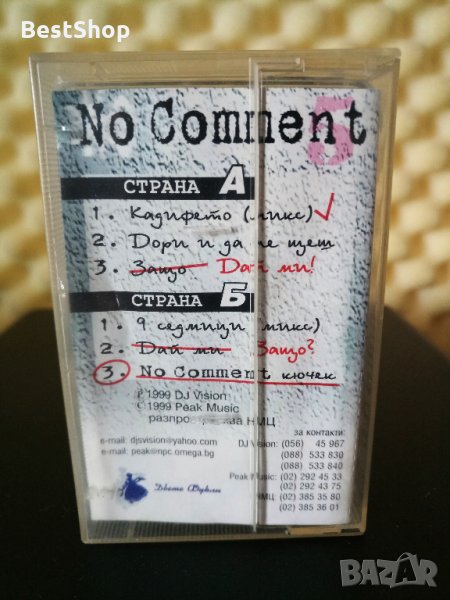 BestShop
No Comment 5
СТРАНА А
1. Кадифето (микс)
2. Дори и да не щеш
3. Защо Дай ми!
СТРАНА Б
1. 9 седмици (микс)
2. Дай ми Защо?
3. No Comment кючек
℗ 1999 DJ Vision
© 1999 Peak Music
НМЦ
за контакти:
e-mail: djsvision@yahoo.com DJ Vision: (056) 45 967
e-mail: peak@npc.omega.bg (088) 533 830
(088) 533 840
Peak Music: (02) 292 45 33
(02) 292 43 75
НМЦ: (02) 385 35 80
(02) 385 36 01
BAZAR